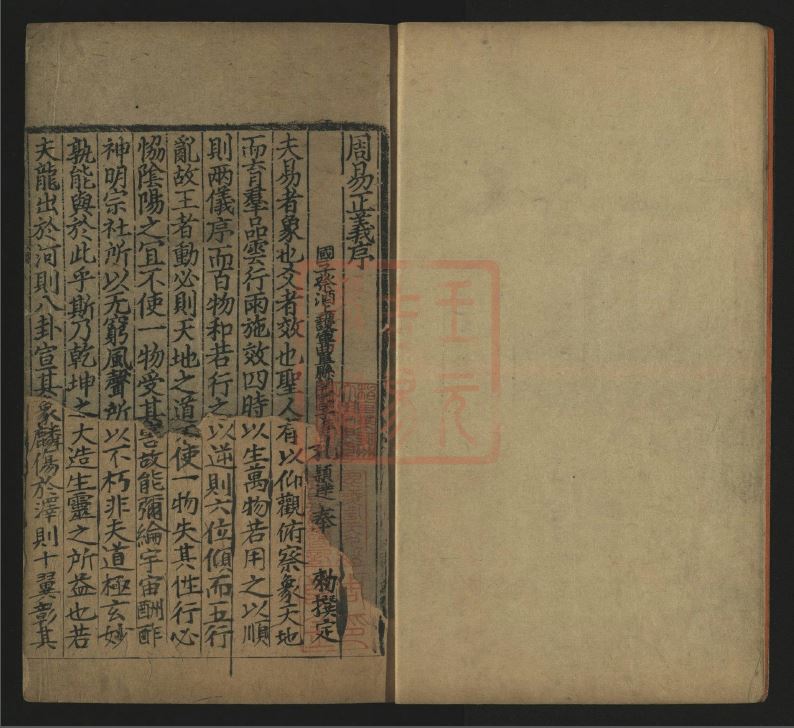 周易正義序
國子祭酒上護軍曲阜縣開國子臣孔穎達奉 勑撰定
夫易者象也爻者效也聖人有以仰觀俯察象天地
而育羣品雲行雨施效四時以生萬物若用之以順
則兩儀序而百物和若行之以逆則六位傾而五行
亂故王者動必則天地之道不使一物失其性行必
恊陰陽之宜不使一物受其害故能彌綸宇宙酬酢
神明宗社所以无窮風聲所以不朽非夫道極玄妙
孰能與於此乎斯乃乾坤之大造生靈之所益也若
夫龍出於河則八卦宣其象麟傷於澤則十翼彰其